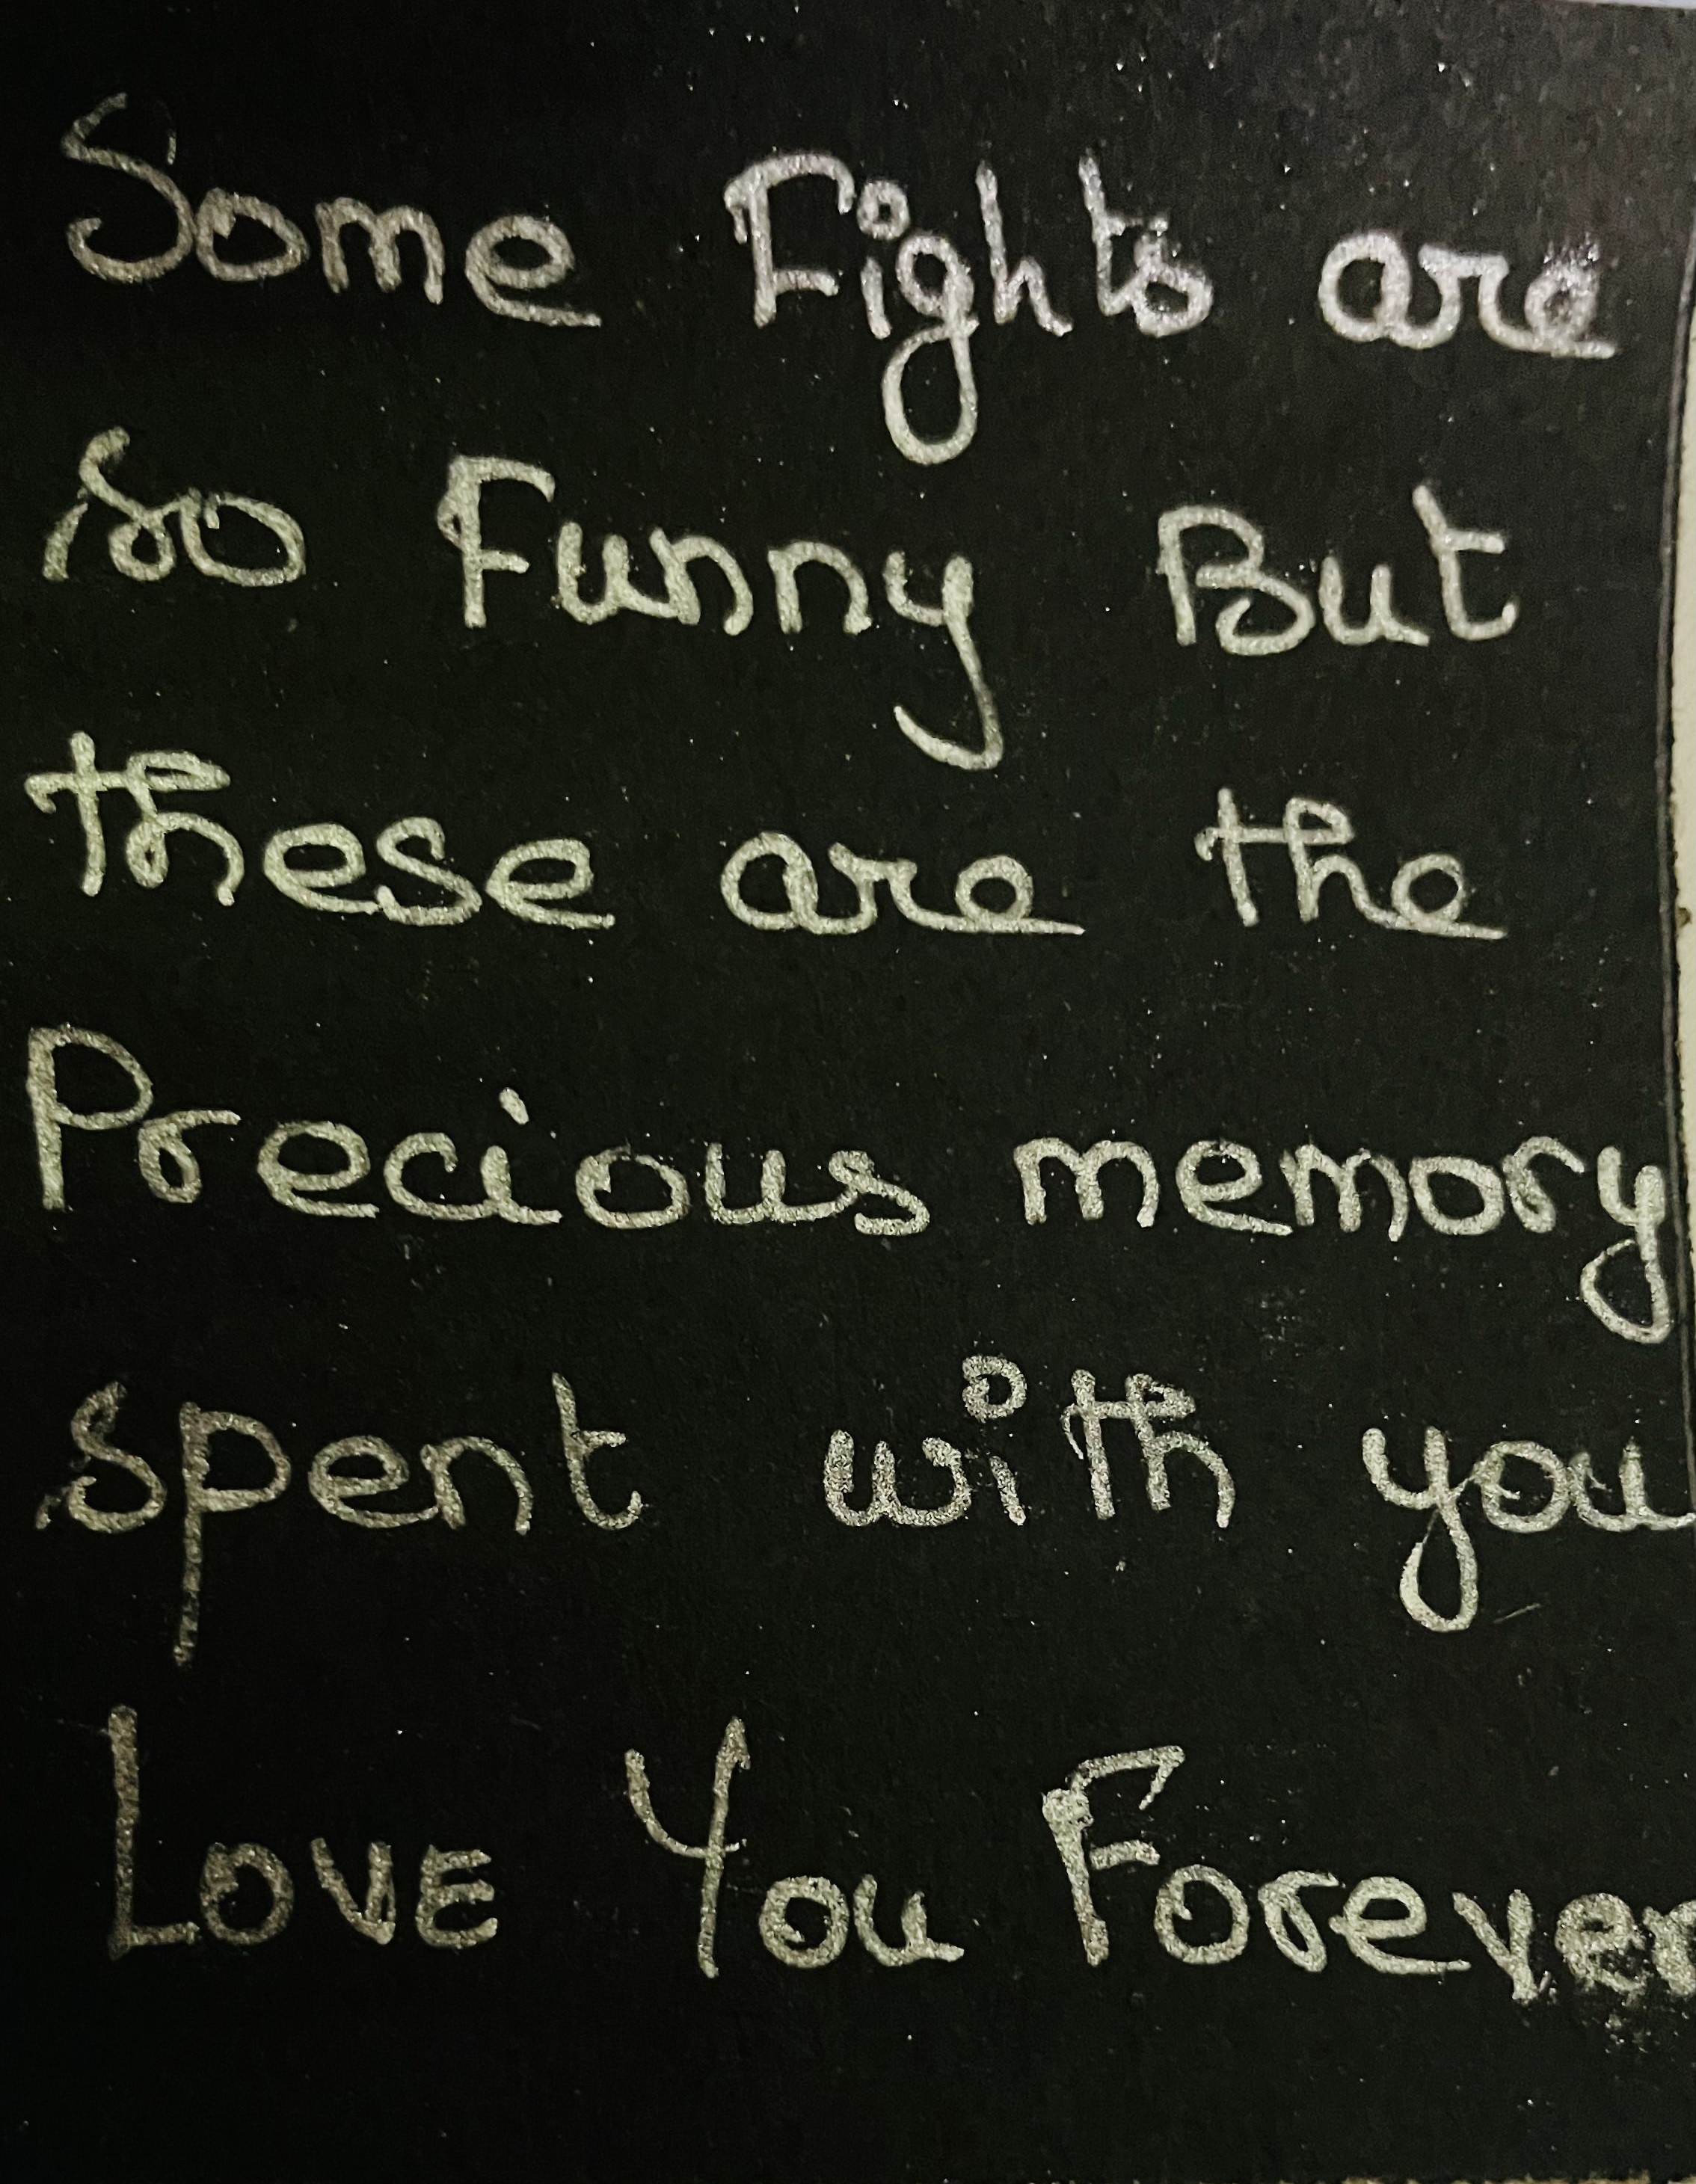 Some Fights are
so Funny But
these are the
Precious memory
spent with you
Love You Forever